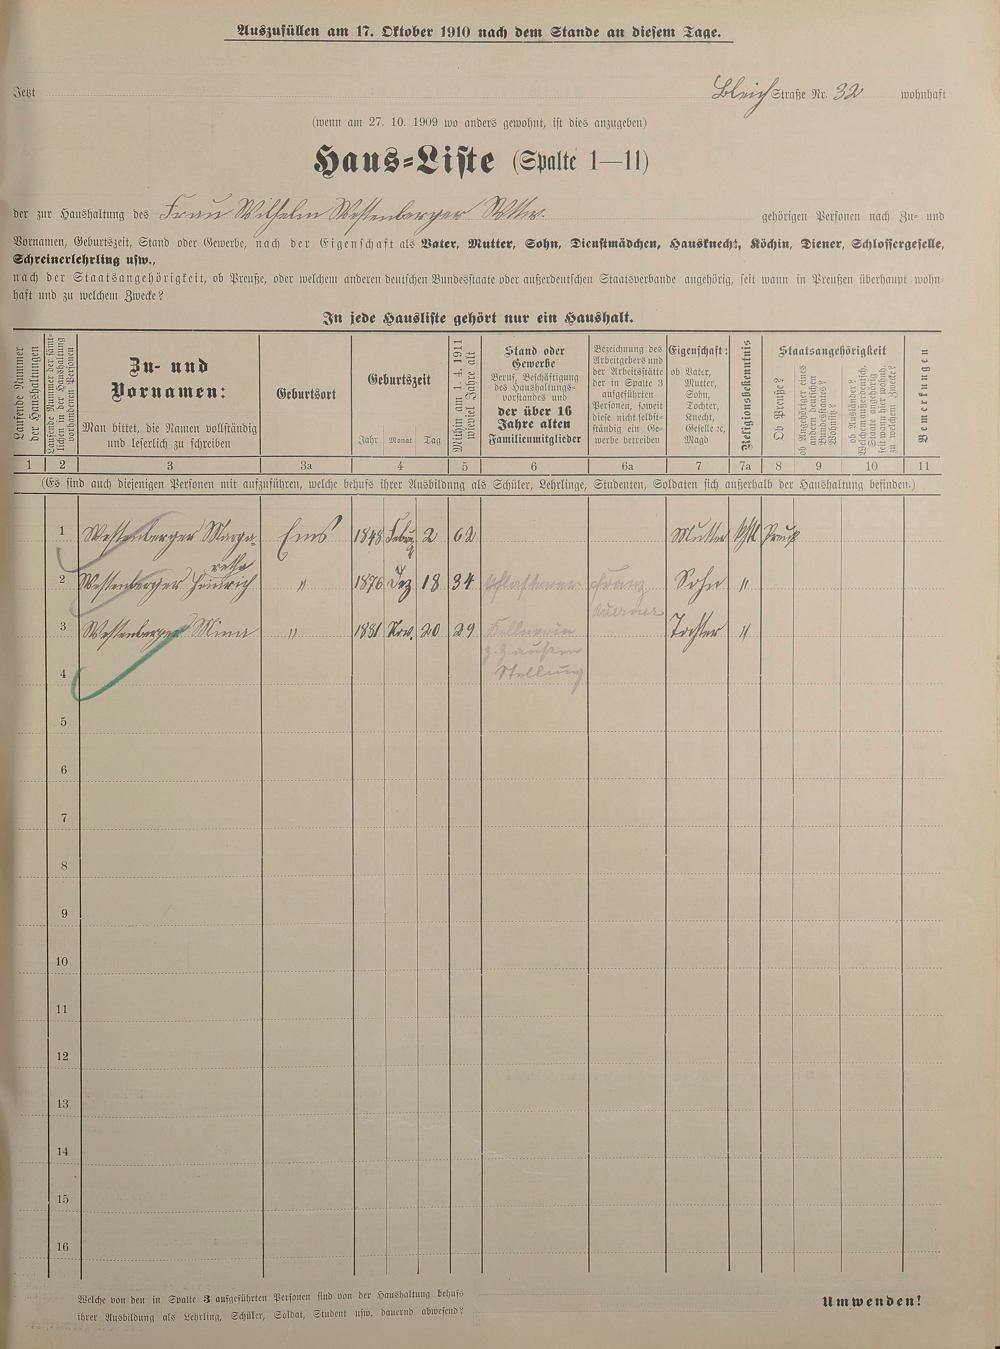 Auszufüllen am 17. Oktober 1910 nach dem Stande an diesem Tage.
Jetzt Bleich Straße Nr. 32 wohnhaft
(wenn am 27. 10. 1909 wo anders gewohnt, ist dies anzugeben)
Haus=Liste (Spalte 1—11)
der zur Haushaltung des Frau Wilhelm Westenberger Wttw. gehörigen Personen nach Zu- und
Vornamen, Geburtszeit, Stand oder Gewerbe, nach der Eigenschaft als Vater, Mutter, Sohn, Dienstmädchen, Hausknecht, Köchin, Diener, Schlossergeselle,
Schreinerlehrling usw.,
nach der Staatsangehörigkeit, ob Preuße, oder welchem anderen deutschen Bundesstaate oder außerdeutschen Staatsverbande angehörig, seit wann in Preußen überhaupt wohn-
haft und zu welchem Zwecke?
In jede Hausliste gehört nur ein Haushalt.
Laufende Nummer
der Haushaltungen
Laufende Nummer der sämt-
lichen in der Haushaltung
vorhandenen Personen
Zu- und
Vornamen:
Man bittet, die Namen vollständig
und leserlich zu schreiben
Geburtsort
Geburtszeit
Jahr Monat Tag
Mithin am 1. 4. 1911
wieviel Jahre alt
Stand oder
Gewerbe
Beruf, Beschäftigung
des Haushaltungs-
vorstandes und
der über 16
Jahre alten
Familienmitglieder
Bezeichnung des
Arbeitgebers und
der Arbeitsstätte
der in Spalte 3
aufgeführten
Personen, soweit
diese nicht selbst-
ständig ein Ge-
werbe betreiben
Eigenschaft:
ob Vater,
Mutter,
Sohn,
Tochter,
Knecht,
Geselle ꝛc,
Magd
Religionsbekenntnis
Staatsangehörigkeit
Ob Preuße?
ob Angehöriger eines
andern deutschen
Bundesstaates?
Wohnsitz?
ob Ausländer?
Welchem außerdeutsch.
Staate angehörig
seit wann hier wohnh.
zu welchem Zwecke?
Bemerkungen
1 2 3 3a 4 5 6 6a 7 7a 8 9 10 11
(Es sind auch diejenigen Personen mit aufzuführen, welche behufs ihrer Ausbildung als Schüler, Lehrlinge, Studenten, Soldaten sich außerhalb der Haushaltung befinden.)
1 Westenberger Marga- Ems 1848 2 62 Mutter Kth Preuß
retha
2 Westenberger Heinrich " 1876 Dez 18 34 Pflasterer Franz Sohn "
3 Westenberger Mina " 1881 Nov. 20 29 Kellnerin Tochter "
z. Z. außer
4 Stellung
5
6
7
8
9
10
11
12
13
14
15
16
Welche von den in Spalte 3 aufgeführten Personen sind von der Haushaltung behufs
ihrer Ausbildung als Lehrling, Schüler, Soldat, Student usw. dauernd abwesend?
Umwenden!